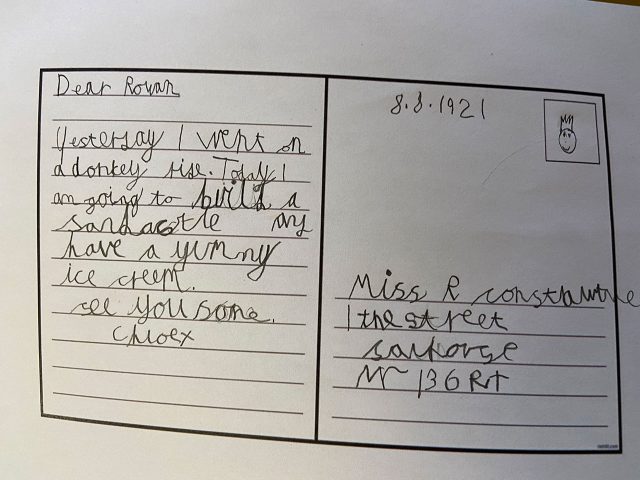 Dear Rowan
Yesterday I went on
a donkey rise. Today I
am going to build a
sandcastle any
have a yummy
ice creem.
see you sone.
Chloex
8.8.1921
Miss R constantine
1 the street
Nr 13 6RT